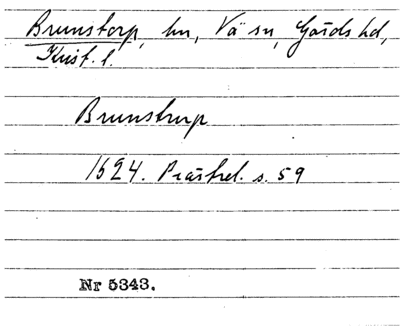 Brunstorp, hn, Vä sn, Gärds hd,
Krist. l.
Brunstrup
1624. Prästrel. s. 59
Nr 5343.